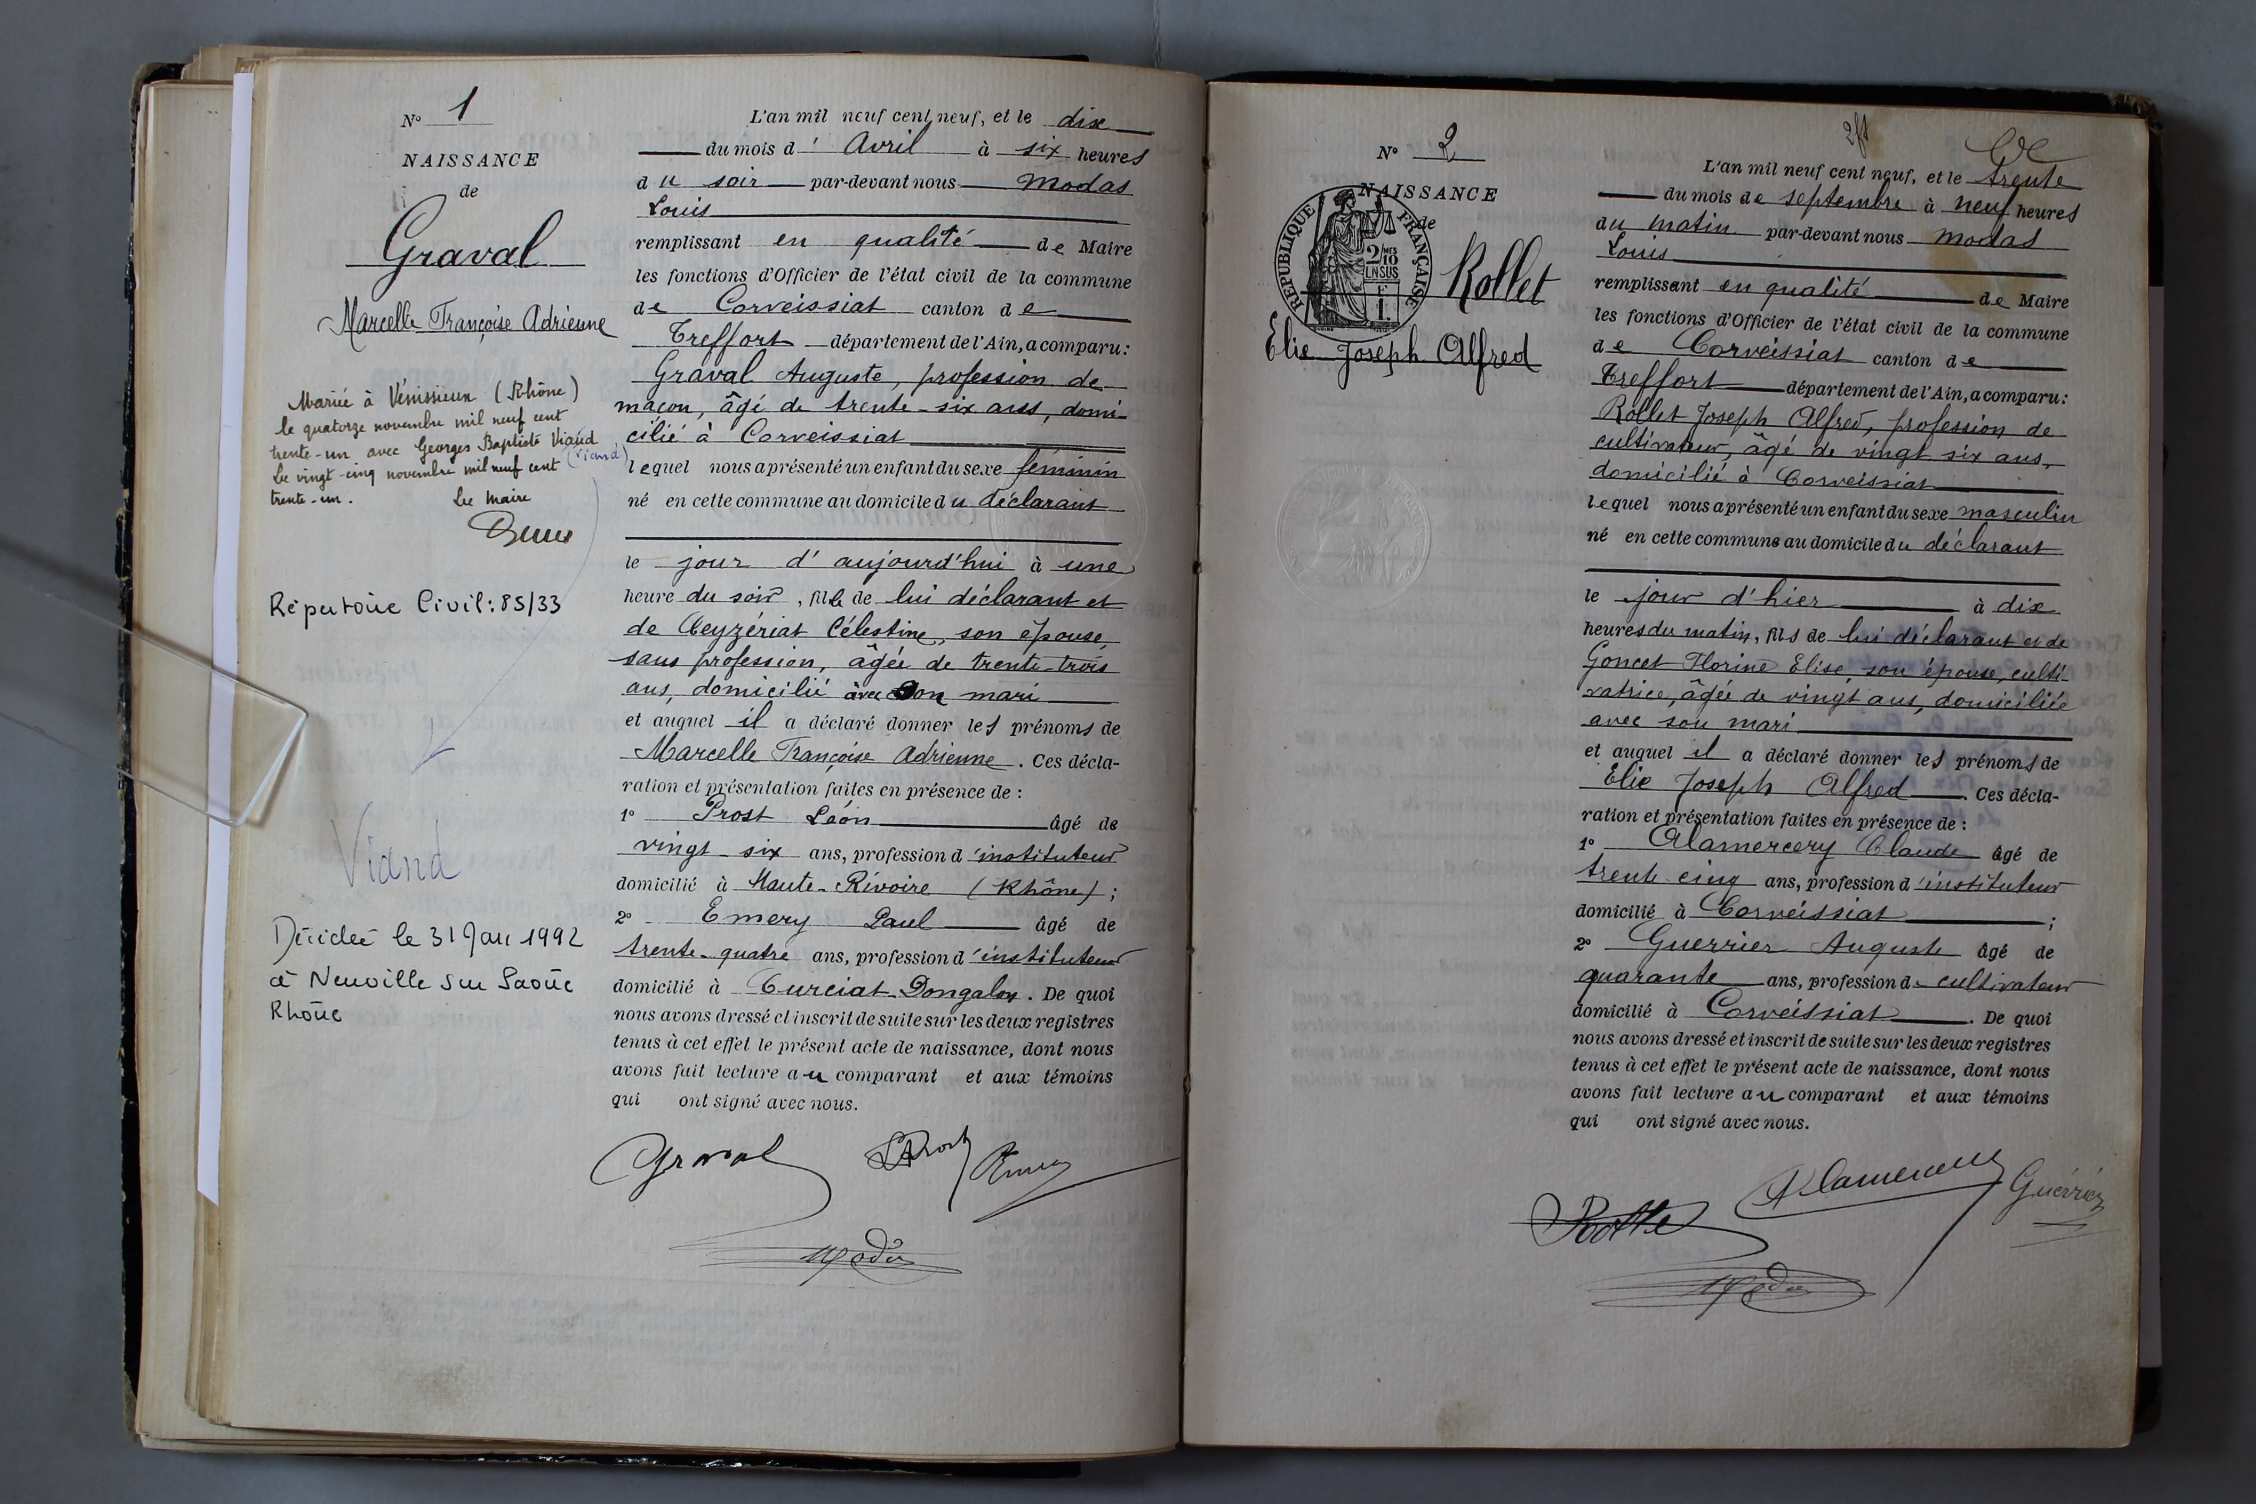 N° 1
NAISSANCE
de
Graval
Marcelle Françoise Adrienne
Mariée à Vénissieux (Rhône)
le quatorze novembre mil neuf cent
trente-un avec Georges Baptiste Viand
(Viand)
Le vingt-cinq novembre mil neuf cent
trente-un. Le Maire
Répertoire Civil : 85/33
Viand
Décédée le 31 Jan 1992
à Neuville sur Saône
Rhône
L'an mil neuf cent neuf, et le dix
du mois d' Avril à six heures
du soir par-devant nous Modas
Louis
remplissant en qualité de Maire
les fonctions d'Officier de l'état civil de la commune
de Corveissiat canton de
Treffort département de l'Ain, a comparu :
Graval Auguste, profession de
maçon, âgé de trente-six ans, domi-
cilié à Corveissiat
lequel nous a présenté un enfant du sexe féminin
né en cette commune au domicile du déclarant
le jour d'aujourd'hui à une
heure du soir, fille de lui déclarant et
de Ceyzériat Célestine, son épouse,
sans profession, âgée de trente-trois
ans, domicilié avec son mari
et auquel il a déclaré donner les prénoms de
Marcelle Françoise Adrienne. Ces décla-
ration et présentation faites en présence de :
1° Prost Léon âgé de
vingt-six ans, profession d'instituteur
domicilié à Haute-Rivoire (Rhône) ;
2° Emery Paul âgé de
trente-quatre ans, profession d'instituteur
domicilié à Curciat-Dongalon. De quoi
nous avons dressé et inscrit de suite sur les deux registres
tenus à cet effet le présent acte de naissance, dont nous
avons fait lecture au comparant et aux témoins
qui ont signé avec nous.
Graval LProst Emery
Modas
N° 2
NAISSANCE
de
RÉPUBLIQUE FRANÇAISE
2/10 EN SUS
Rollet
Elie Joseph Alfred
L'an mil neuf cent neuf, et le trente
du mois de septembre à neuf heures
du matin par-devant nous Modas
Louis
remplissant en qualité de Maire
les fonctions d'Officier de l'état civil de la commune
de Corveissiat canton de
Treffort département de l'Ain, a comparu :
Rollet Joseph Alfred, profession de
cultivateur, âgé de vingt six ans,
domicilié à Corveissiat
lequel nous a présenté un enfant du sexe masculin
né en cette commune au domicile du déclarant
le jour d'hier à dix
heures du matin, fils de lui déclarant et de
Goncet Florine Elise, son épouse, culti-
vatrice, âgée de vingt ans, domiciliée
avec son mari
et auquel il a déclaré donner les prénoms de
Elie Joseph Alfred. Ces décla-
ration et présentation faites en présence de :
1° Alamercery Claude âgé de
trente cinq ans, profession d'instituteur
domicilié à Corveissiat ;
2° Guerrier Auguste âgé de
quarante ans, profession de cultivateur
domicilié à Corveissiat. De quoi
nous avons dressé et inscrit de suite sur les deux registres
tenus à cet effet le présent acte de naissance, dont nous
avons fait lecture au comparant et aux témoins
qui ont signé avec nous.
Rollet Alamercery Guérrier
Modas